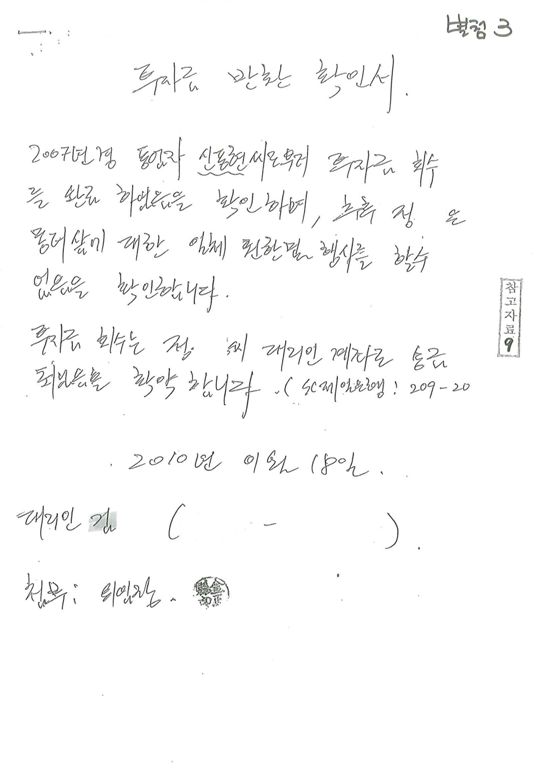 별첨 3
투자금 반환 확인서.
2007년경 동업자 신표현씨로부터 투자금 회수
를 완료 하였음을 확인하며, 추후 정 은
대한 일체 권한을 행사를 할수
없음을 확인합니다.
투자금 회수는 정 씨 대리인 계좌로 송금
되었음을 확약합니다. (SC제일은행: 209-20
2010년 01월 18일.
대리인 김 ( - ).
첨부: 위임장.
참고자료 9